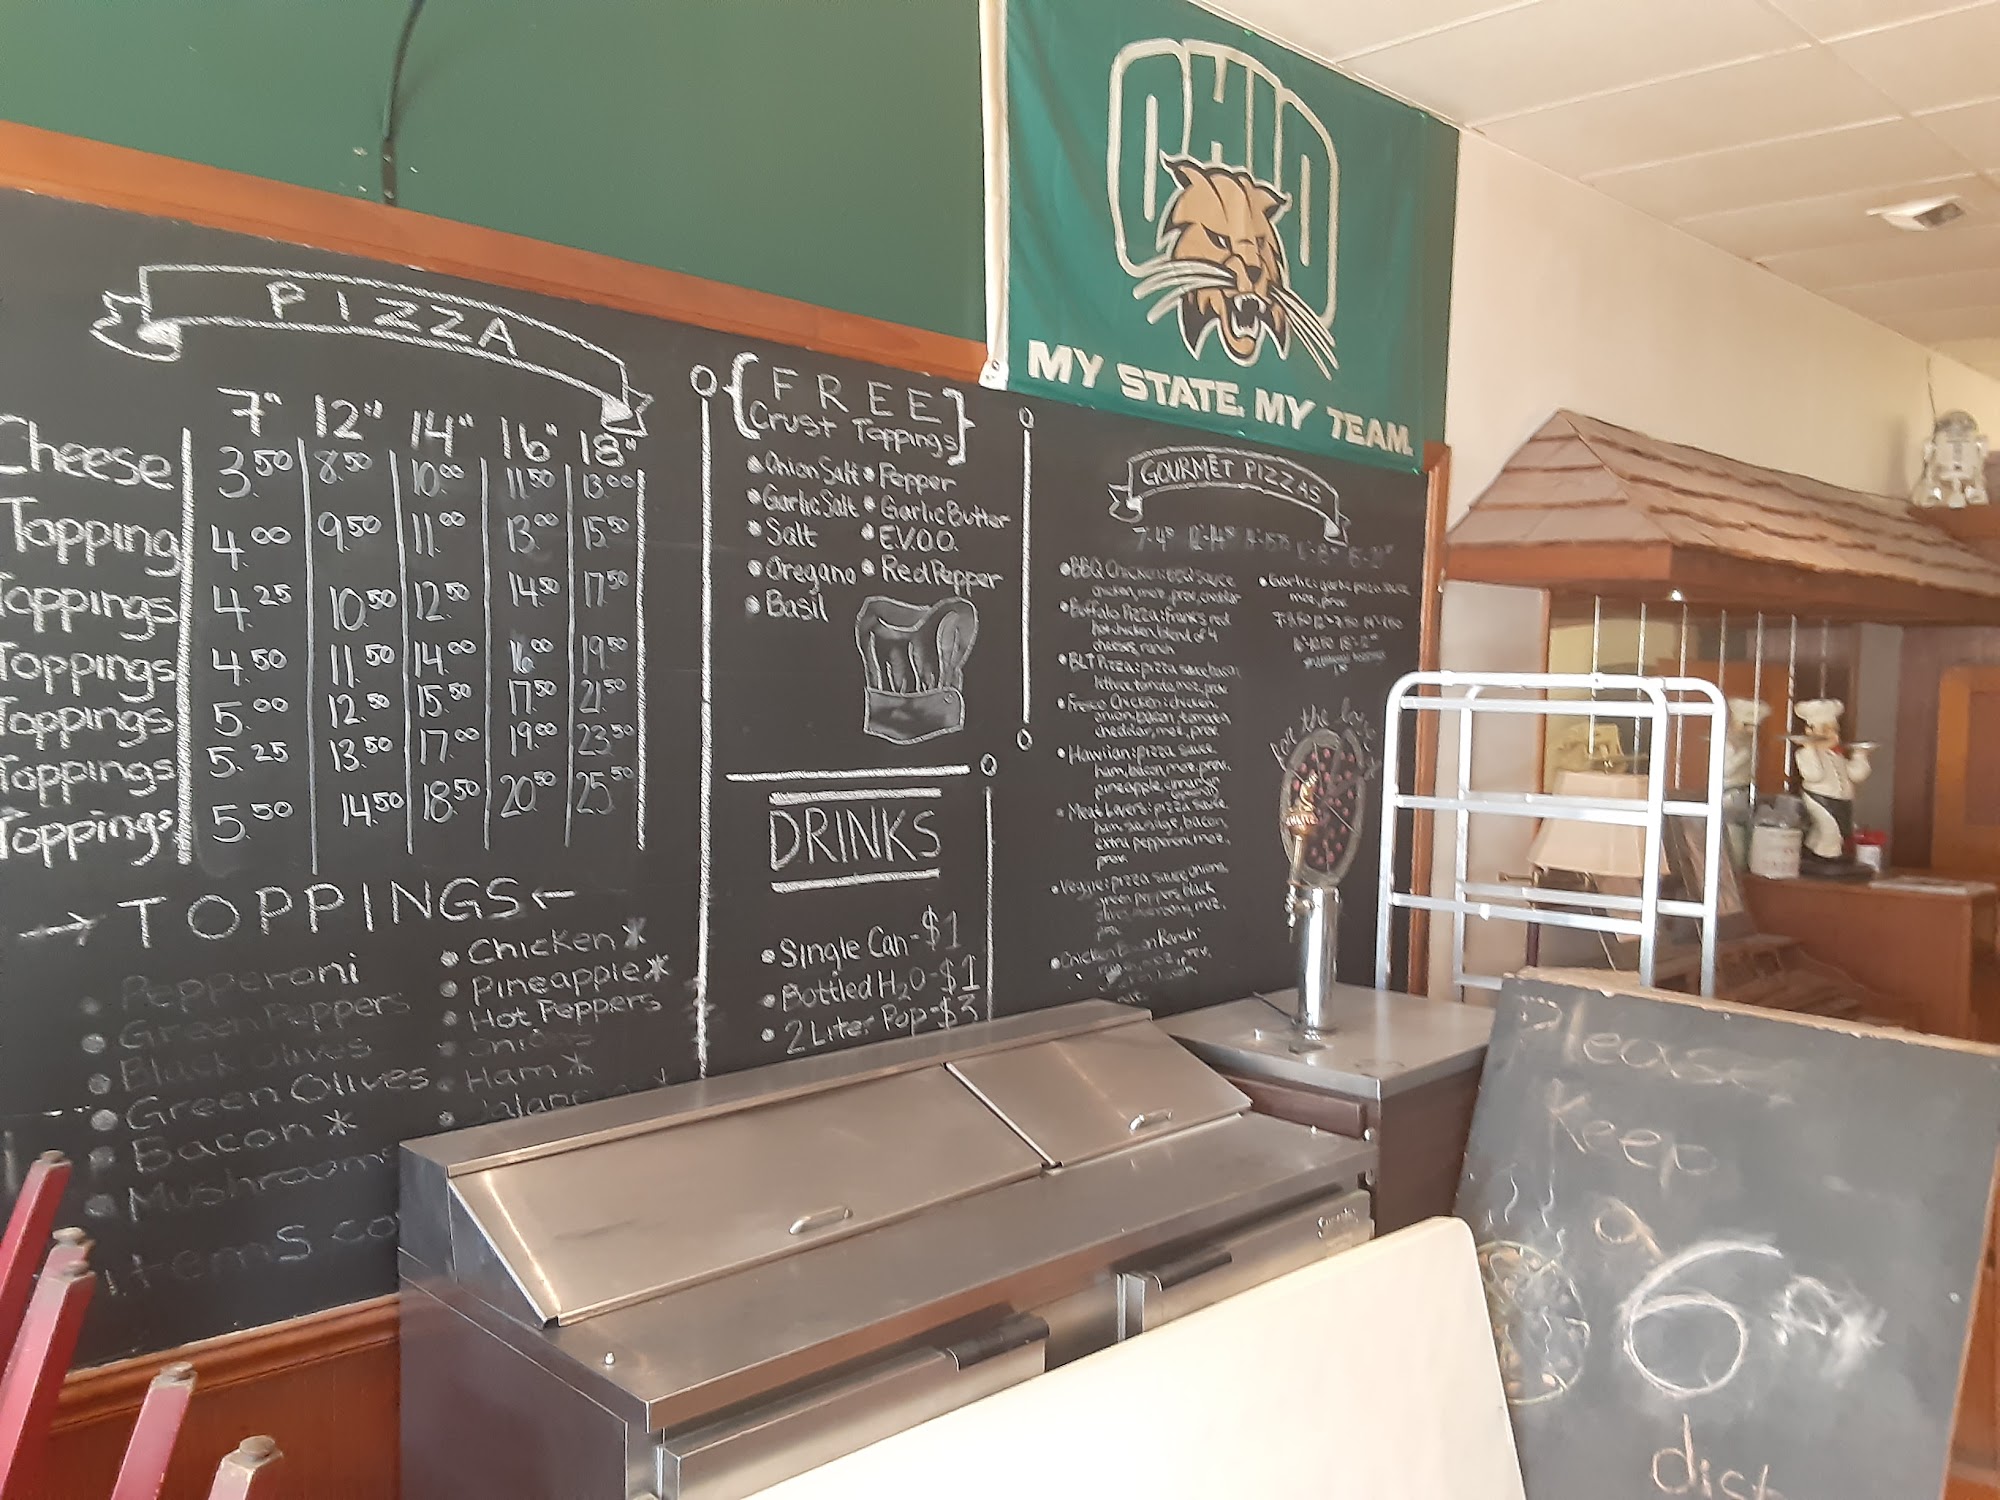 PIZZA
7" 12" 14" 16" 18"
Cheese 3.50 8.50 10.00 11.50 13.00
Topping 4.00 9.50 11.00 13.00 15.50
Toppings 4.25 10.50 12.50 14.50 17.50
Toppings 4.50 11.50 14.00 16.00 19.50
Toppings 5.00 12.50 15.50 17.50 21.50
Toppings 5.25 13.50 17.00 19.00 23.50
Toppings 5.50 14.50 18.50 20.50 25.50
→ TOPPINGS ←
• Pepperoni
• Green Peppers
• Black Olives
• Green Olives
• Bacon *
• Mushrooms
• Chicken *
• Pineapple *
• Hot Peppers
• Onions
• Ham *
items
{FREE
Crust Toppings}
• Onion Salt • Pepper
• Garlic Salt • Garlic Butter
• Salt • E.V.O.O.
• Oregano • Red Pepper
• Basil
DRINKS
• Single Can - $1
• Bottled H2O - $1
• 2 Liter Pop - $3
OHIO
MY STATE. MY TEAM.
GOURMET PIZZAS
• BBQ Chicken: BBQ sauce
chicken, moz, prov, cheddar
• Buffalo Pizza: Frank's red
hot chicken, blend of 4
cheeses, ranch
• BLT Pizza: pizza sauce, bacon,
lettuce, tomato, moz, prov
• Fresco Chicken: chicken,
onion, bacon, tomato
cheddar, moz, prov
• Hawiian: pizza sauce
ham, bacon, moz, prov,
pineapple, cinnamon
• Meat Lovers: pizza sauce,
ham, sausage, bacon,
extra pepperoni, moz,
prov.
• Veggie: pizza sauce, onions,
green peppers, black
olives, mushrooms, moz,
prov
• Chicken Bacon Ranch:
• Garlic: garlic pizza sauce
moz, prov
for the love
Please
Keep
a
6